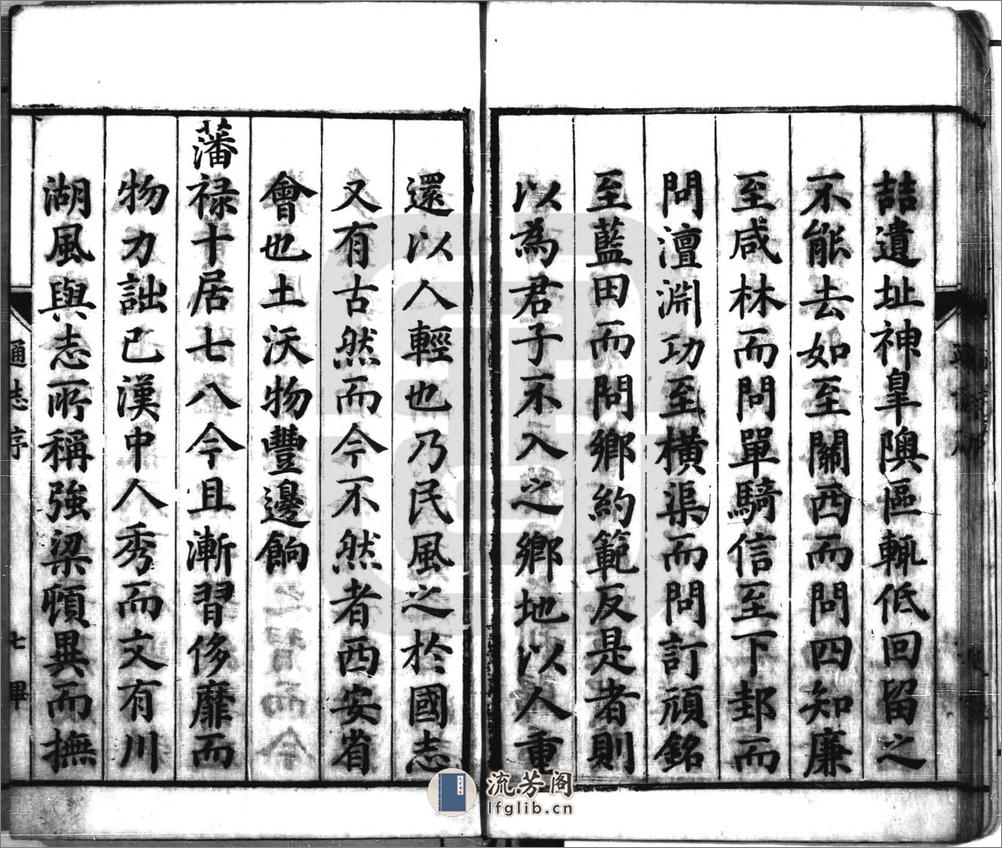 喆遺址神皐隩區輒低回留之
不能去如至關西而問四知廉
至咸林而問單騎信至下邽而
問澶淵功至橫渠而問訂頑銘
至藍田而問鄉約範反是者則
以為君子不入之鄉地以人重
還以人輕也乃民風之於國志
又有古然而今不然者西安省
會也土沃物豐邊餉
藩祿十居七八今且漸習侈靡而
物力詘已漢中人秀而文有川
湖風與志所稱強梁頓異而撫
通志序
七
畢
流芳阁
lfglib.cn